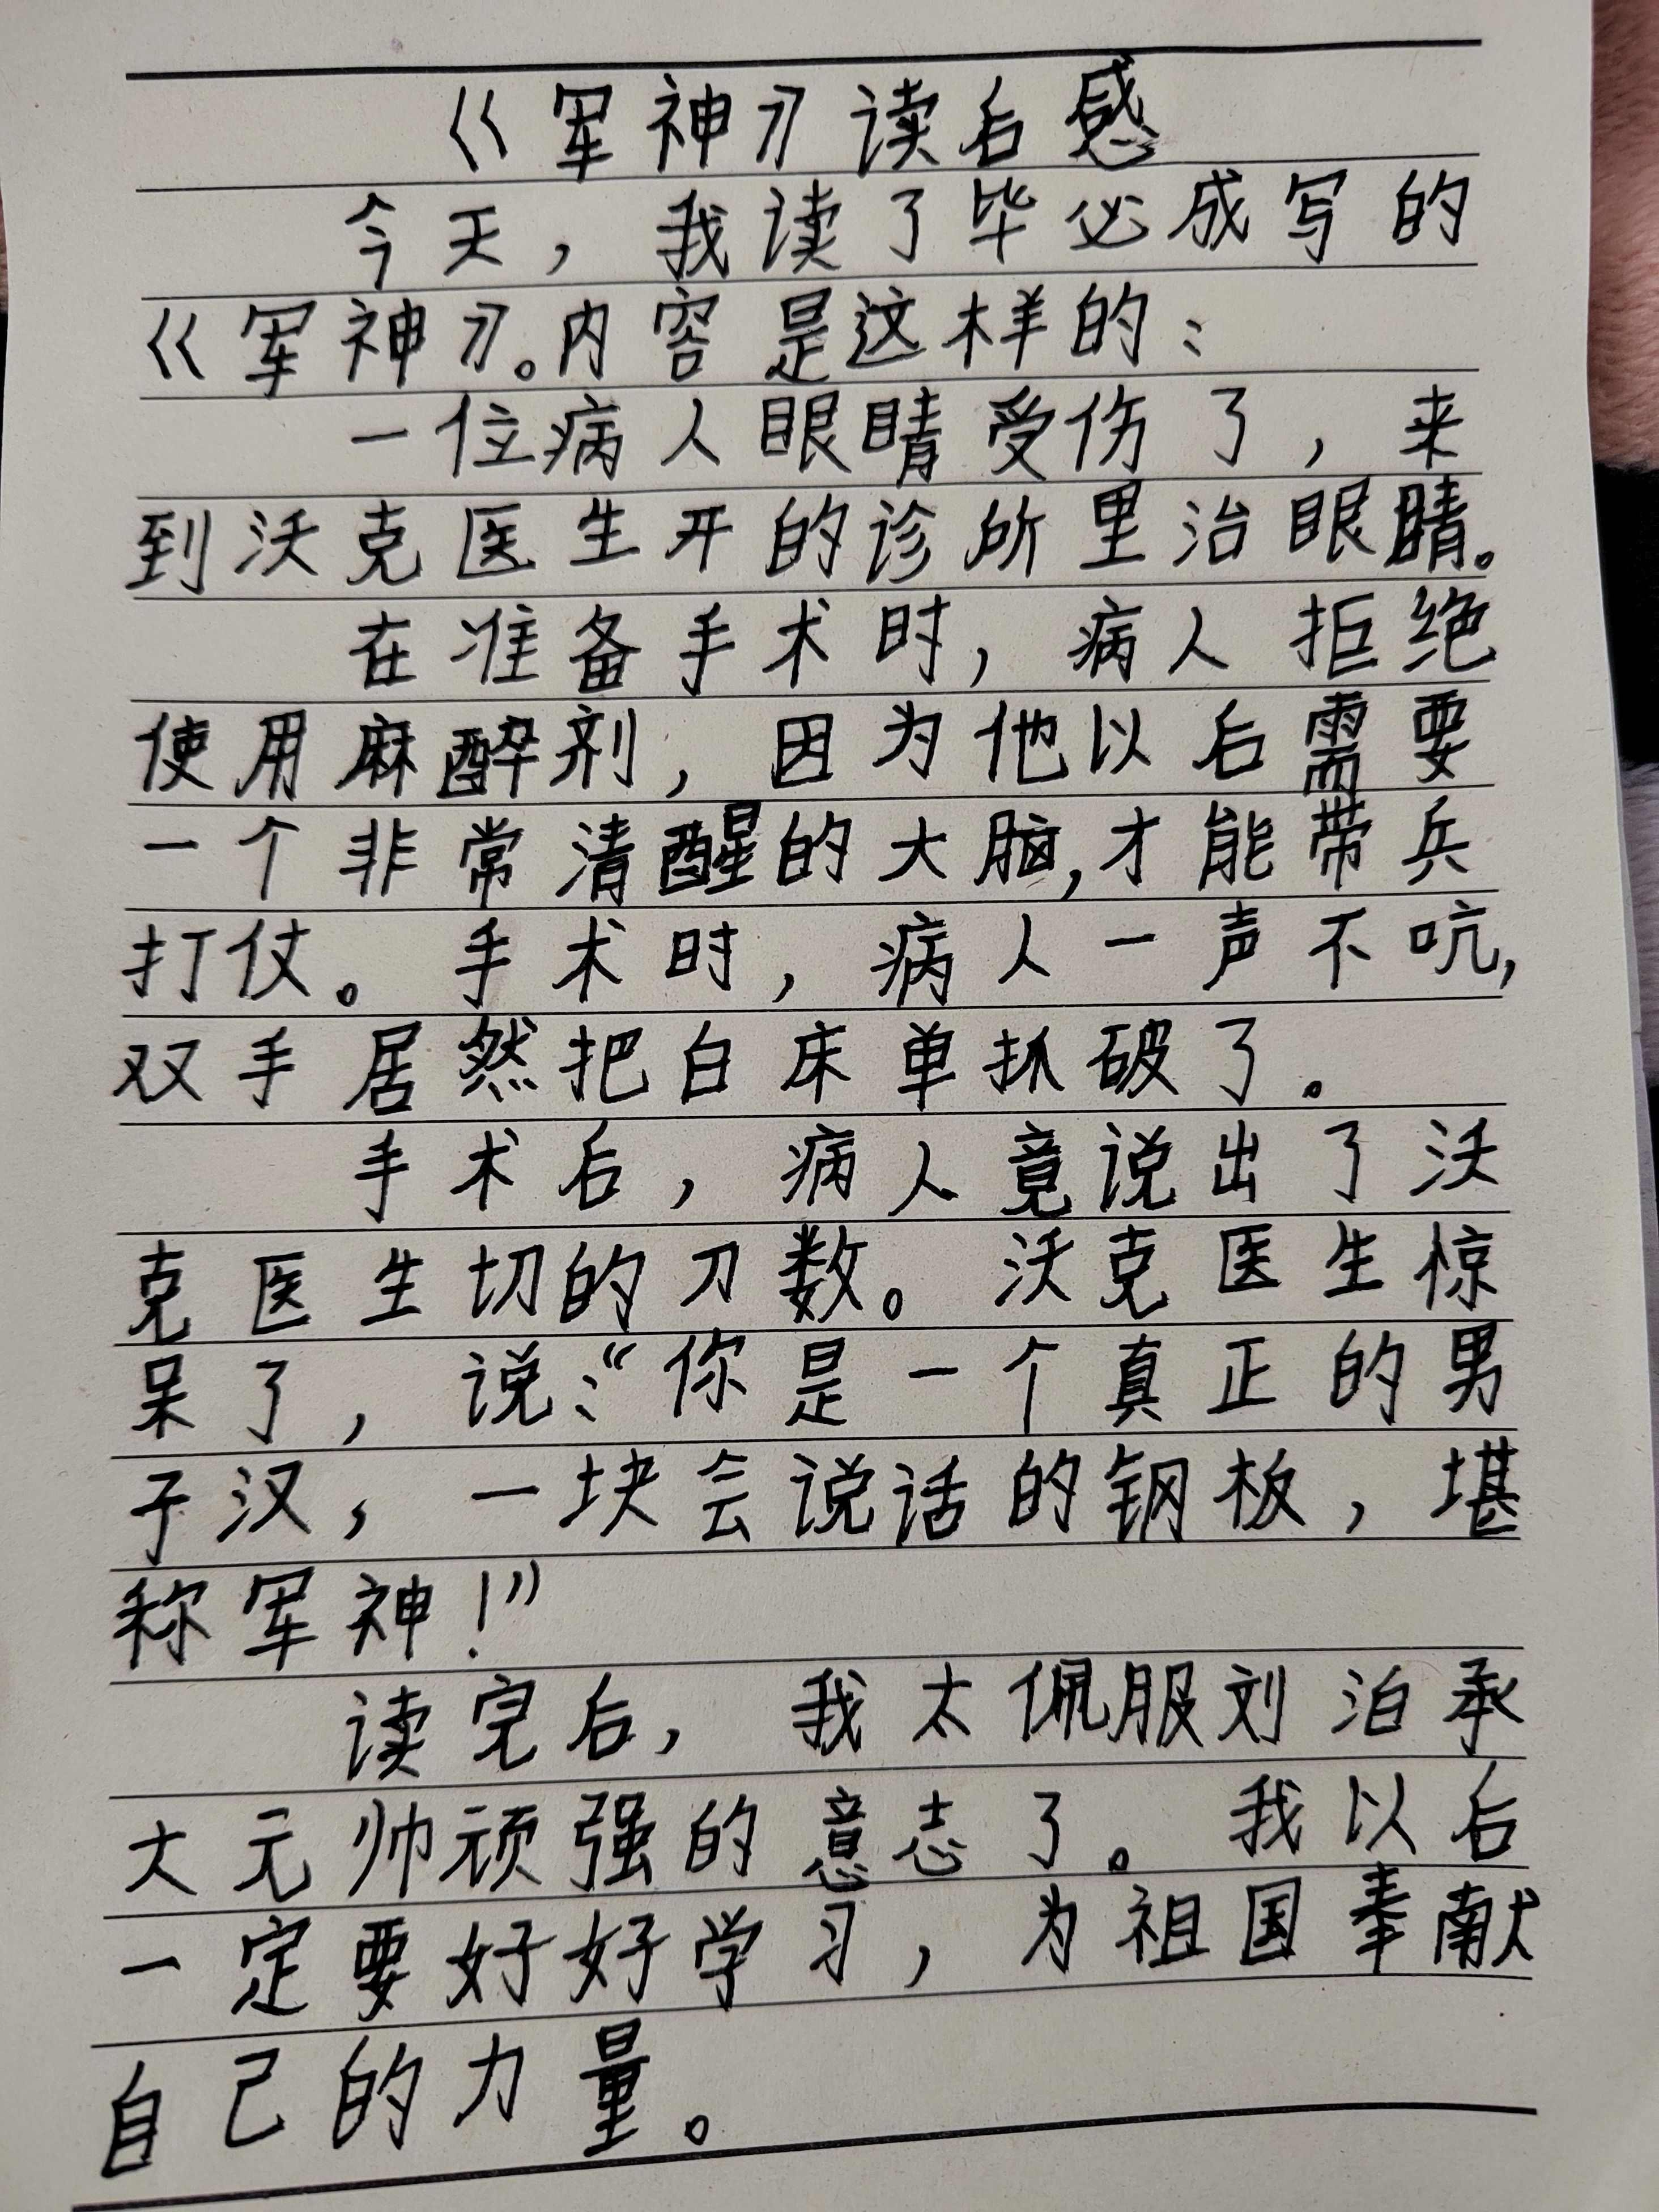 《军神》读后感
今天，我读了毕必成写的
《军神》。内容是这样的：
一位病人眼睛受伤了，来
到沃克医生开的诊所里治眼睛。
在准备手术时，病人拒绝
使用麻醉剂，因为他以后需要
一个非常清醒的大脑，才能带兵
打仗。手术时，病人一声不吭，
双手居然把白床单抓破了。
手术后，病人竟说出了沃
克医生切的刀数。沃克医生惊
呆了，说：“你是一个真正的男
子汉，一块会说话的钢板，堪
称军神！”
读完后，我太佩服刘泊承
大元帅顽强的意志了。我以后
一定要好好学习，为祖国奉献
自己的力量。